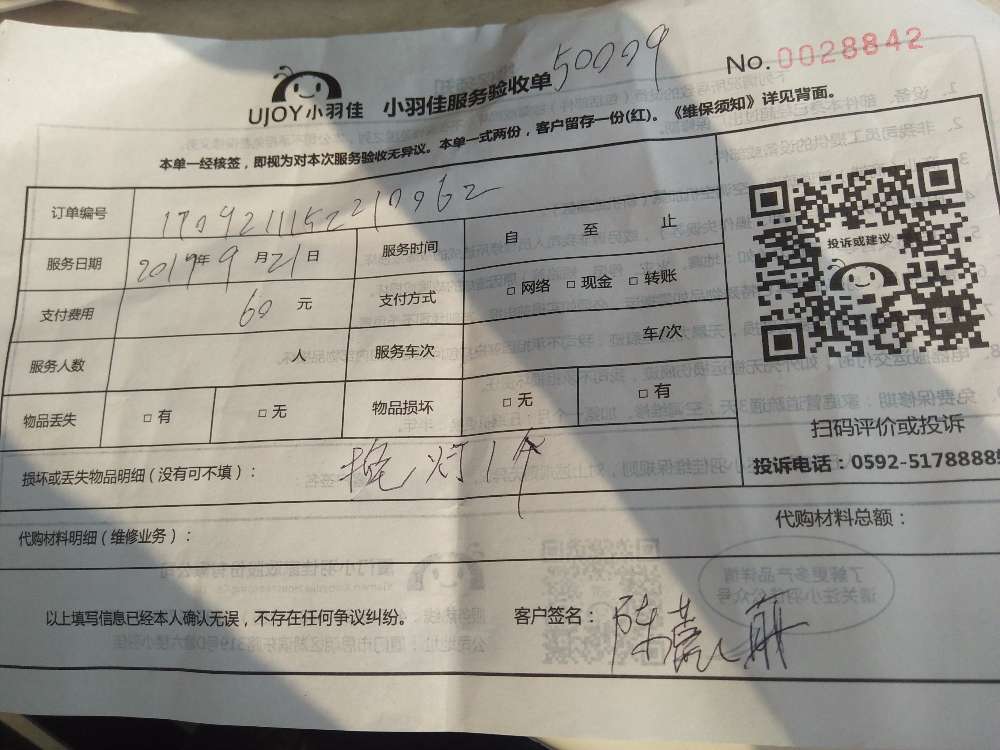 50009
No.0028842
UJOY小羽佳 小羽佳服务验收单
本单一经核签，即视为对本次服务验收无异议。本单一式两份，客户留存一份(红)。《维保须知》详见背面。
订单编号 1709211152210062
服务日期 2017年9月21日 服务时间 自 至 止
支付费用 60 元 支付方式 □网络 □现金 □转账
服务人数 人 服务车次 车/次
物品丢失 □有 □无 物品损坏 □无 □有
投诉或建议
扫码评价或投诉
投诉电话：0592-5178888
损坏或丢失物品明细（没有可不填）： 灯1个
代购材料明细（维修业务）： 代购材料总额：
以上填写信息已经本人确认无误，不存在任何争议纠纷。 客户签名：